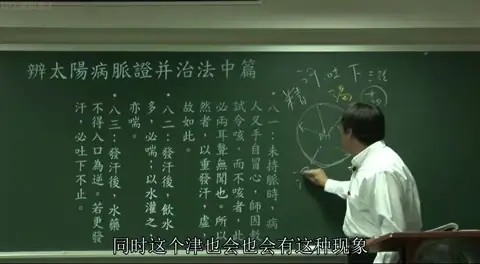 辨太陽病脈證并治法中篇
汗吐下
精
·八一：未持脈時，病
人叉手自冒心，師因教
試令咳，而不咳者，此
必兩耳聾無聞也。所以
然者，以重發汗，虛
故如此。
·八二：發汗後，飲水
多，必喘；以水灌之
亦喘。
·八三：發汗後，水藥
不得入口為逆。若更發
汗，必吐下不止。
同时这个津也会也会有这种现象